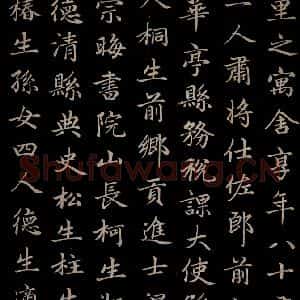 里之寓舍享年八十
人肅將仕佐郎前
華亭縣務稅課大使
人桐生前鄉貢進士
宗晦書院山長柯生
德清縣典史松生柱生
椿生孫女四人德生適
Shufawang.CN